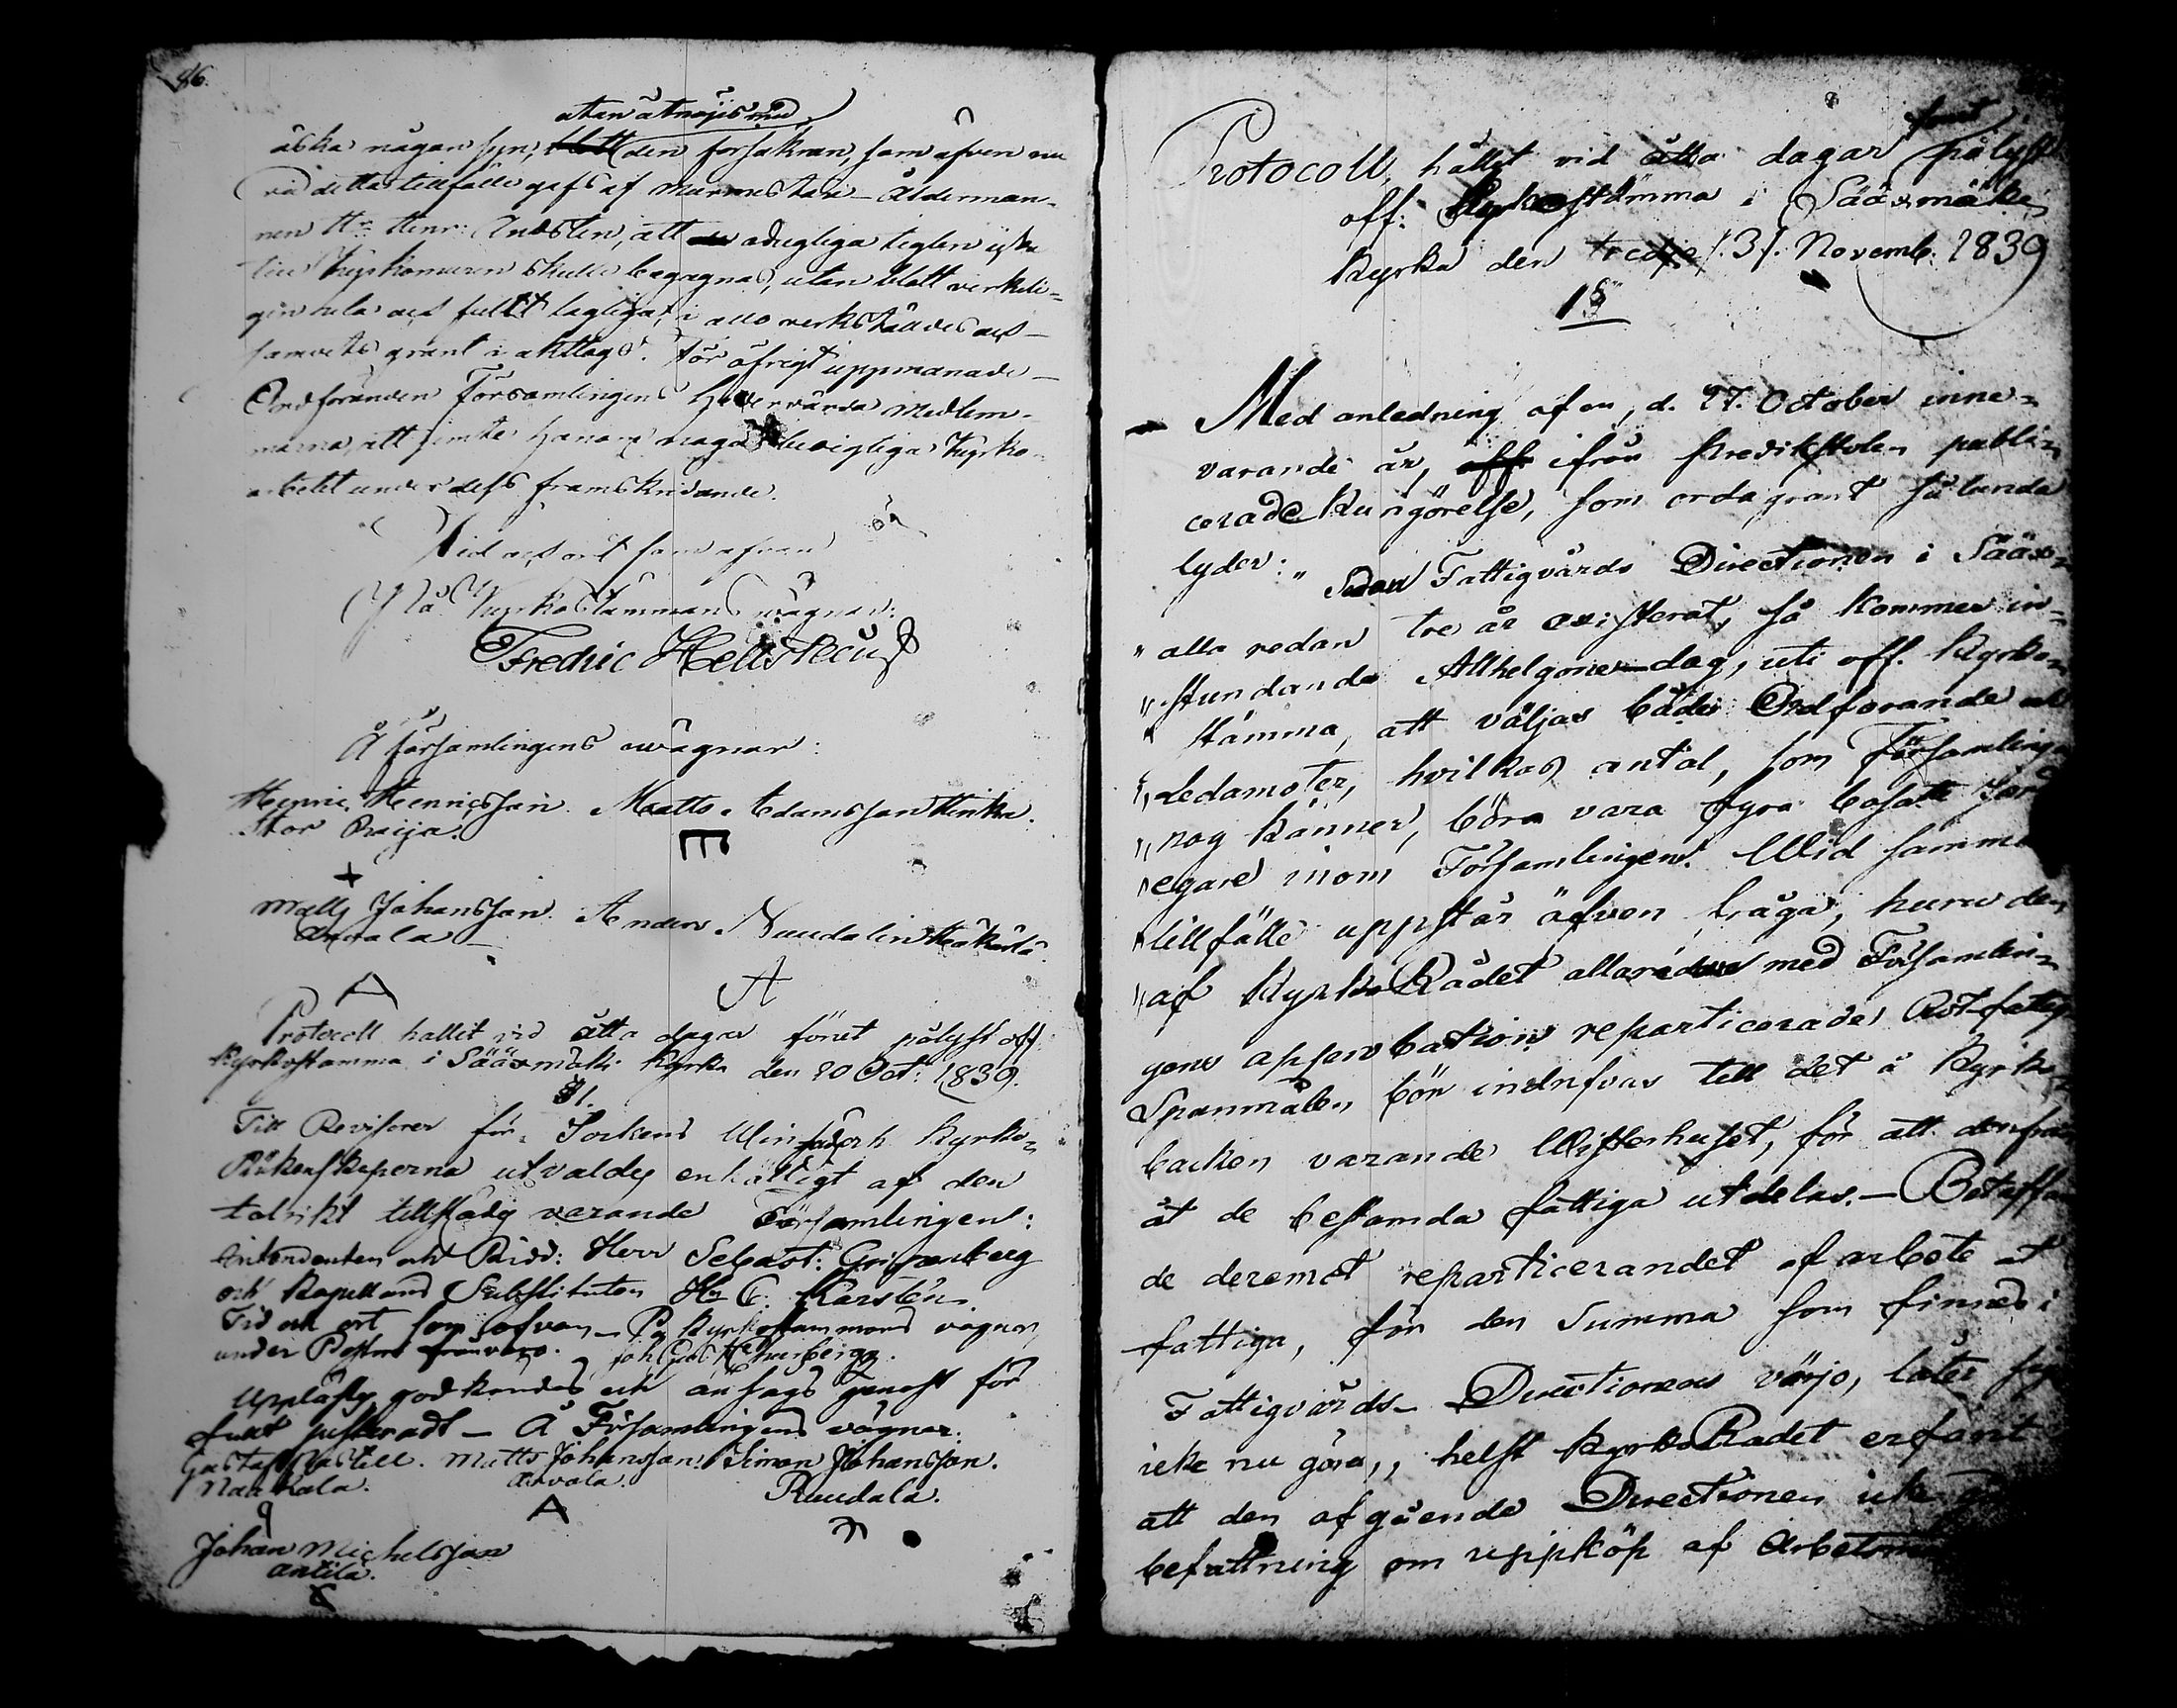 86.
utan åtnöjes med
äska någon syn, blott den försäkran, som äfven nu
vid detta tillfälle gafs af murmästare-Ålderman-
nen Hr Henr: Andstén, att odugliga teglen icke
till Kyrkomuren skulle begagnas, utan blott verkeli-
gen hela och fullt dugliga, i allo verkställdes och
samvets grant i akttogs. För öfrigt uppmanade
Ordföranden Församlingens hedervärda medlem-
marna, att jemte honom noga bevigliga Kyrko-
arbetet under dess framskridande.
Tid och ort som ofvan
På Kyrkostämmans vägnar:
Fredric Hellstecius
Å församlingens wägnar:
Henric Henricsson Matts Adamsson Hinka.
Stor Raija.
Matts Johansson Anders Nuudalin Kaukerla.
Anvala
A
A
Protocoll hållit vid åtta dagar förut pålyst off.
Kyrkostämma i Sääxmäki Kyrka den 20 Oct: 1839.
§1.
Till Revisorer för Sockens Magasins och Kyrko-
Räkenskaperna utvaldes enhälligt af den
talrikt tillstädes varande Församlingen:
Intendenten och Ridd: Herr Sebast: Gripenberg
och Kapellans Substituten Hr C. Karstén.
Tid och ort som ofvan - På Kyrkostämmans vägnar,
under Pastors frånvaro. Joh Gust Thurberg.
Uppläst, godkändes och ansågs genast för
fullt justeradt - Å Församlingens vägnar.
Gustaf Mastell. Matts Johansson. Simon Johansson.
Naakala. Anvala. Ruudala.
A
Johan Michelsson
Antila.
Protocoll, hållet vid åtta dagar förut pålyst
off: Kyrkostämma i Sääxmäki
Kyrka den tredje /:3/. Novemb. 1839
1 §
Med anledning af en, d. 27. October inne-
varande år, off ifrån Predikstolen publi-
cerad Kungörelse, som ordagrant sålunda
lyder: „ Sedan Fattigvårds Directionen i Sääx-
„ alla redan tre år existerat, så kommer in-
„ stundande Allhelgone-dag, uti off. Kyrko-
„ stämma, att väljas både Ordförande och
„ Ledamöter, hvilkas antal, som Församlingen
„ nog känner, böra vara fyra bosatte Jord
„ egare inom Församlingen. Wid samma
„ tillfälle uppstår äfven fråga, huru den
„ af KyrkoRådet allaredan med Församlin-
gens approbation reparticerade Rot-fattig
Spanmålen bör indrifvas till det å Kyrko-
backen varande Wisterhuset, för att derifrån
åt de bestämda fattiga utdelas. - Beträffan
de deremot reparticerandet af arbete åt
fattiga, för den Summa som finnes i
Fattigvårds- Directionens värjo, låter sig
icke nu göra, helst KyrkoRådet erfarit
att den afgående Directionen icke
befattning om uppköp af Arbets